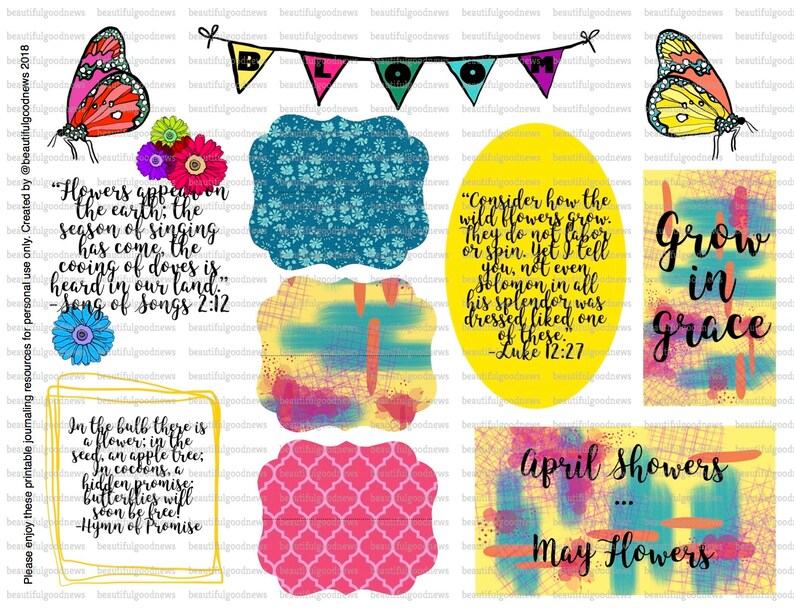 BLOOM
Please enjoy these printable journaling resources for personal use only. Created by @beautifulgoodnews 2018
"Flowers appear on
the earth; the
season of singing
has come, the
cooing of doves is
heard in our land."
-Song of Songs 2:12
"Consider how the
wild flowers grow.
They do not labor
or spin. Yet I tell
you, not even
Solomon in all
his splendor was
dressed liked one
of these."
-Luke 12:27
Grow
in
Grace
In the bulb there is
a flower; in the
seed, an apple tree;
In cocoons, a
hidden promise:
butterflies will
soon be free!
-Hymn of Promise
April Showers
...
May Flowers
beautifulgoodnews